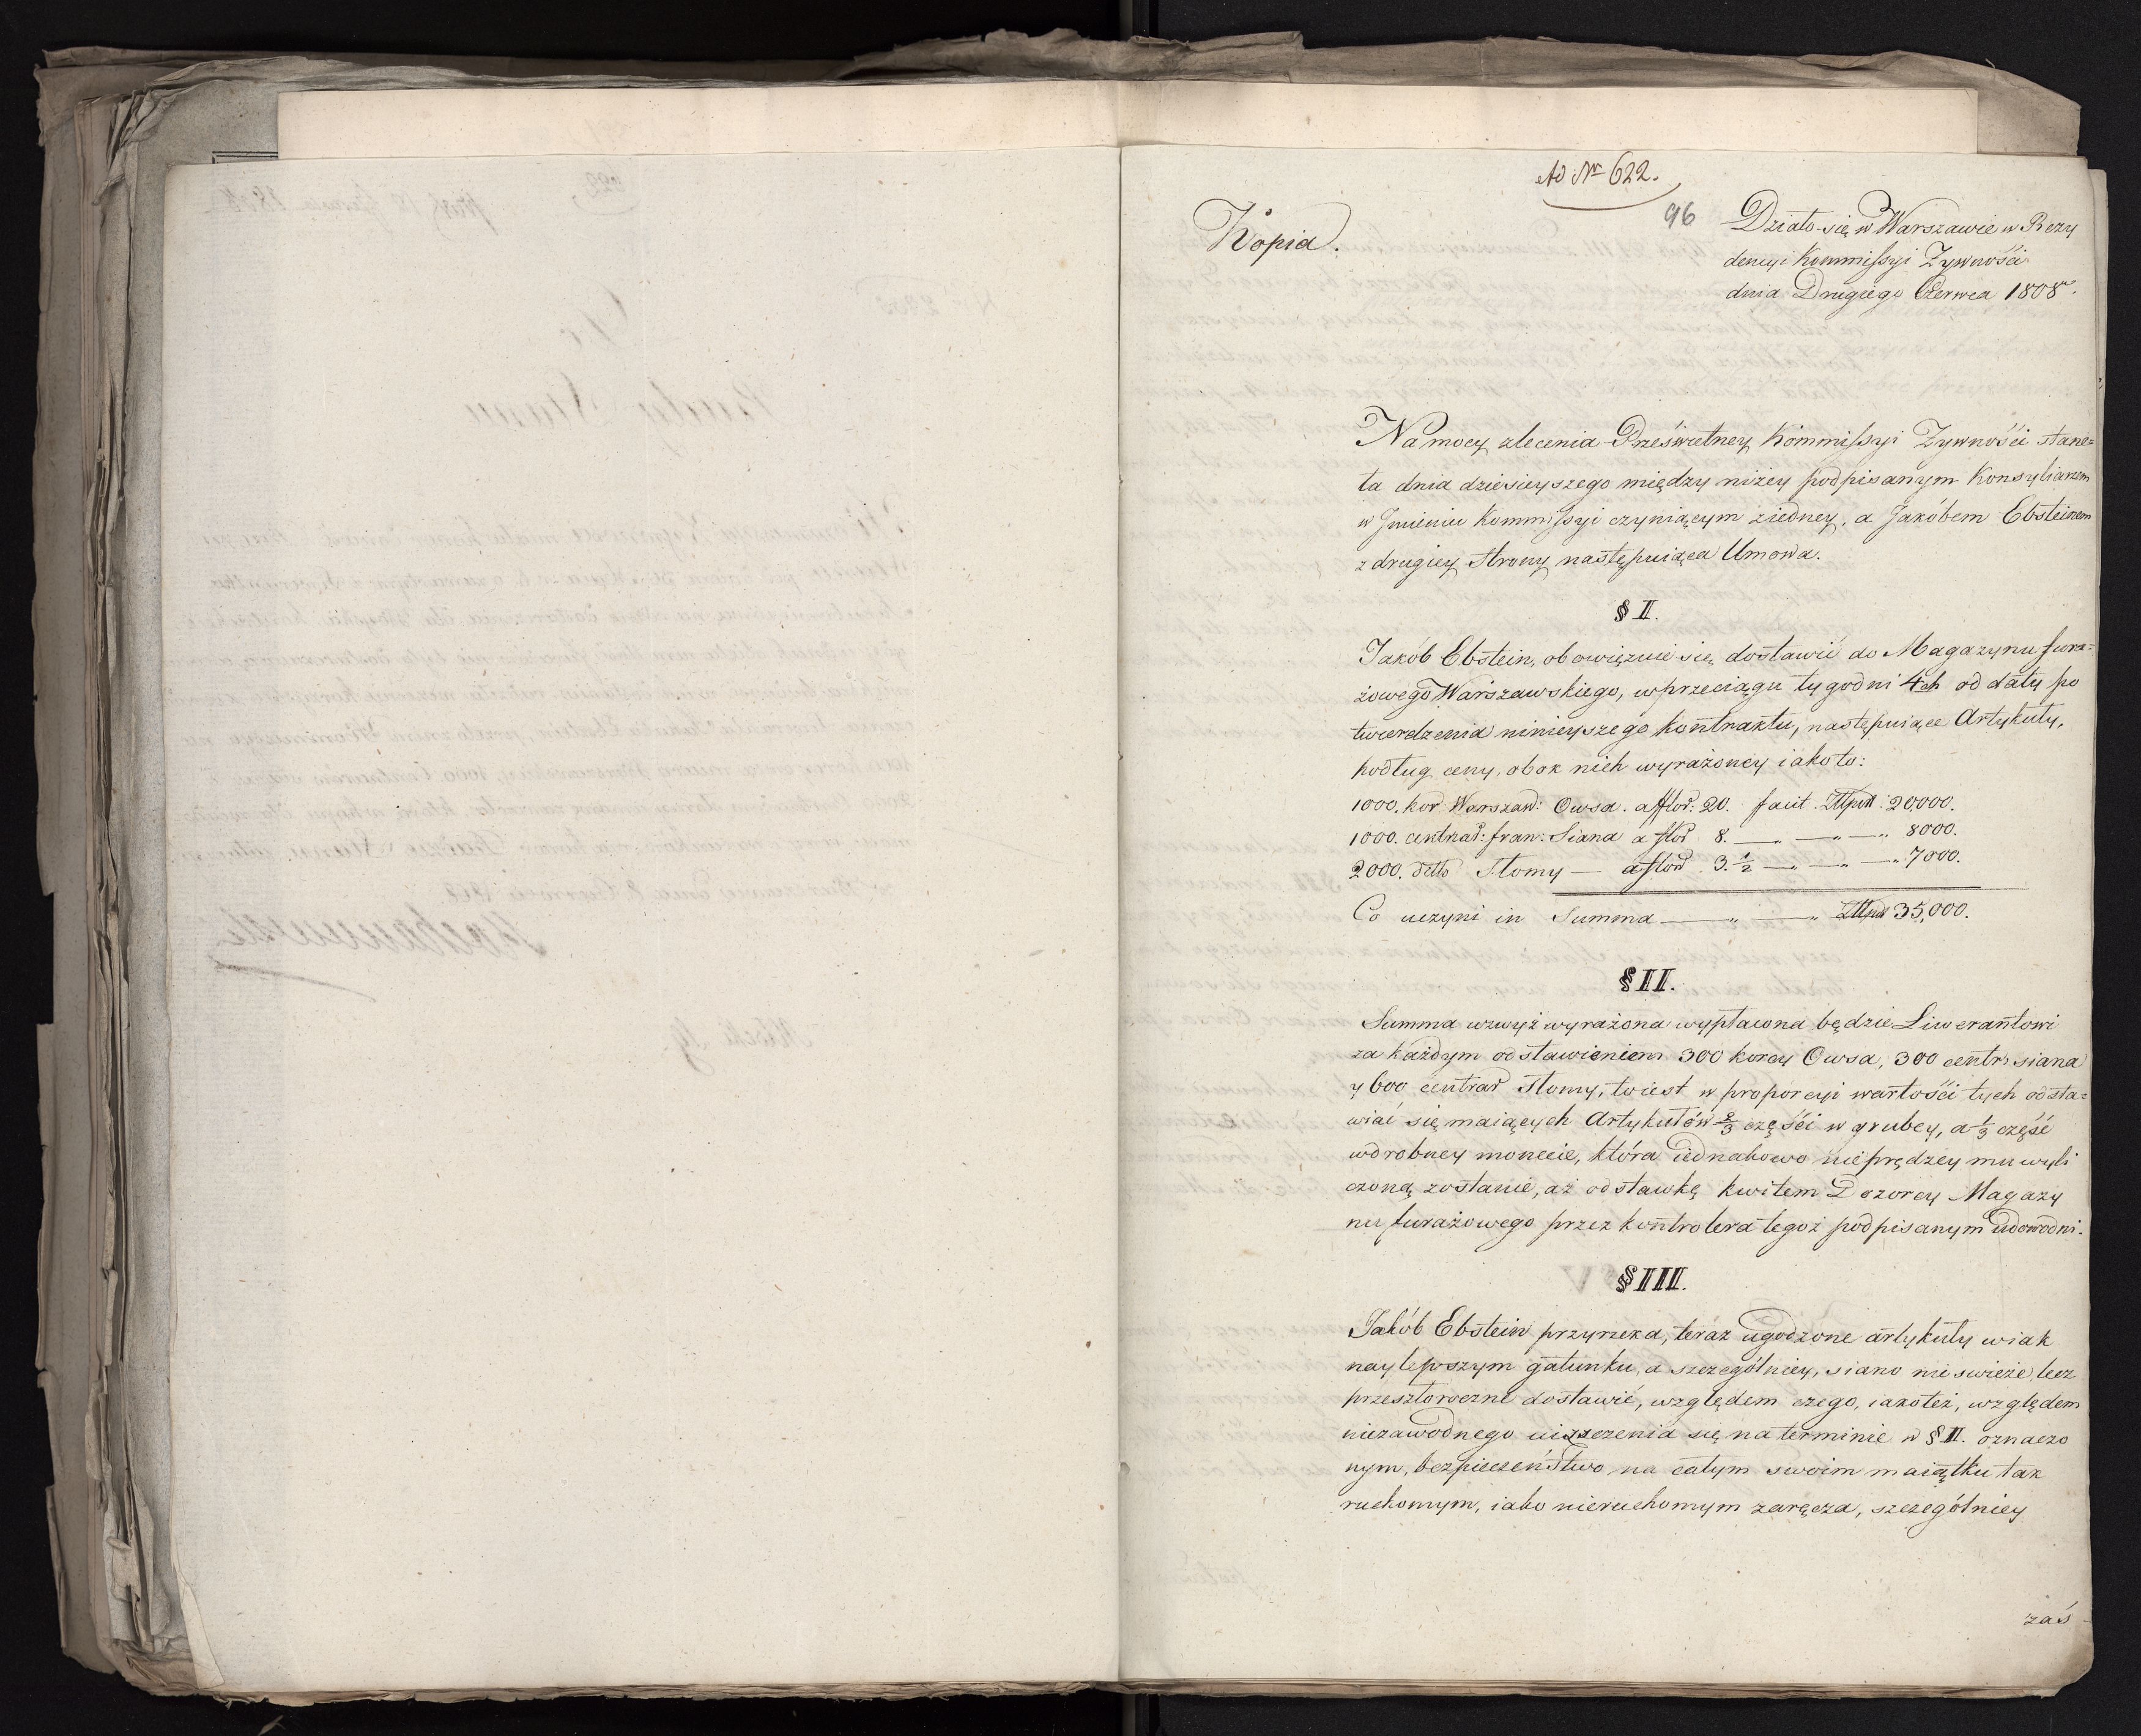 Ad Nr 622.
96
Kopia.
Działo się w Warszawie w Rezy
dencyi Kommissyi Zywności
dnia Drugiego Czerwca 1808.
Na mocy zlecenia Prześwietney Kommissyi Zywności stane=
ła dnia dzisieyszego między niżey podpisanym Konsyliarzem
w Jmieniu Kommissyi czyniącym ziedney, a Jakóbem Ebsteinem
z drugiey strony następuiąca Umowa.
§ I.
Jakób Ebstein, obowięzuie się dostawić do Magazynu fura=
żowego Warszawskiego, w przeciągu tygodni 4ch od daty po
twierdzenia ninieyszego kontraktu, następuiące Artykuły,
podług ceny, obok nich wyrażoney iako to:
1000. kor Warszaw: Owsa. a flor: 20. facit 20000.
1000. centnar: fran: Siana a flor 8. — " — " — " 8000.
2000. detto Słomy — a flor 3. 1/2 — " — " — " 7000.
Co uczyni in Summa — " — " 35,000.
§ II.
Summa wzwyż wyrażona wypłacona będzie Liwerantowi
za każdym odstawieniem 300 korcy Owsa, 300 centr: siana
y 600 centnar Słomy, to iest w proporcyi wartości tych odsta=
wiać się maiących Artykułów 2/3 części w grubey, a 1/3 część
w drobney monecie, która iednakowo nie prędzey mu wyli
czoną zostanie, aż odstawkę kwitem Dozorcy Magazy
nu furażowego przez kontrolera tegoż podpisanym udowodni.
§ III.
Jakób Ebstein przyrzeka, teraz ugodzone artykuły w iak
naylepszym gatunku, a szczególniey, siano nie swieże, lecz
przeszłoroczne dostawić, względem czego, iako też, względem
niezawodnego uiszczenia się na terminie w § II. oznaczo
nym, bezpieczeństwo na całym swoim maiątku tak
ruchomym, iako nieruchomym zaręcza, szczególniey
zaś